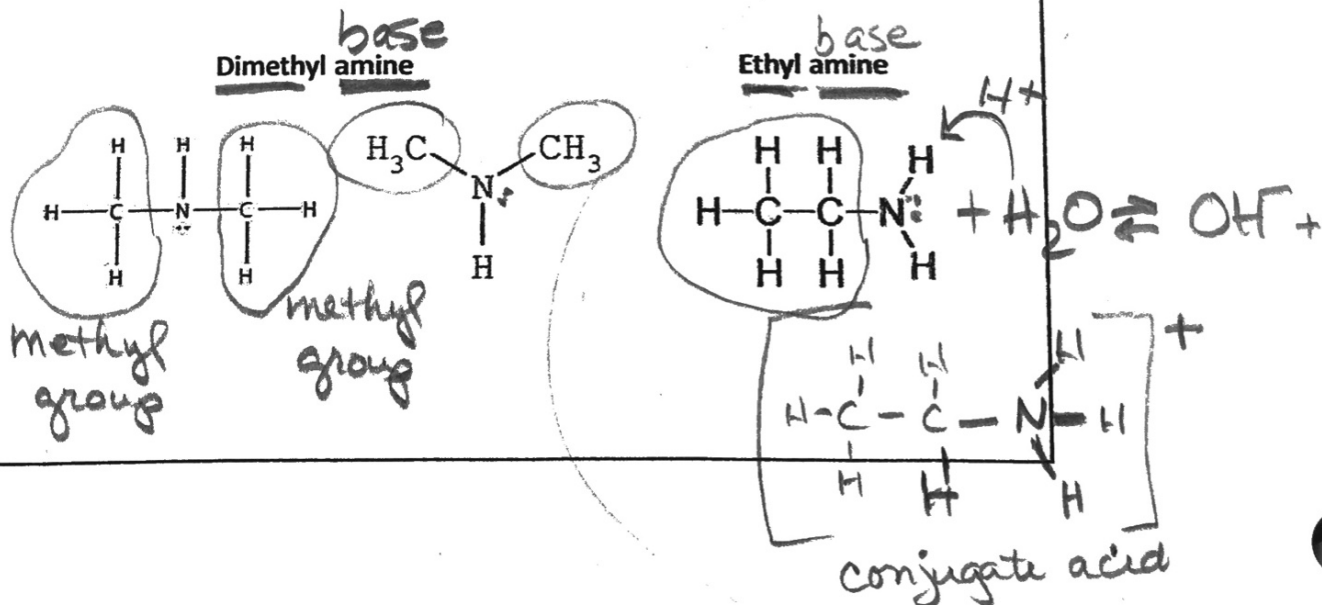 base
Dimethyl amine
H
H
H
H
C
N
C
H
H
H
methyl
group
methyl
group
H₃C
CH₃
N
H
base
Ethyl amine
H+
H
H
H
H
C
C
N
+ H₂O ⇌ OH⁻ +
H
H
H
+
H
H
H
H-C-C-N-H
H
H
H
conjugate acid